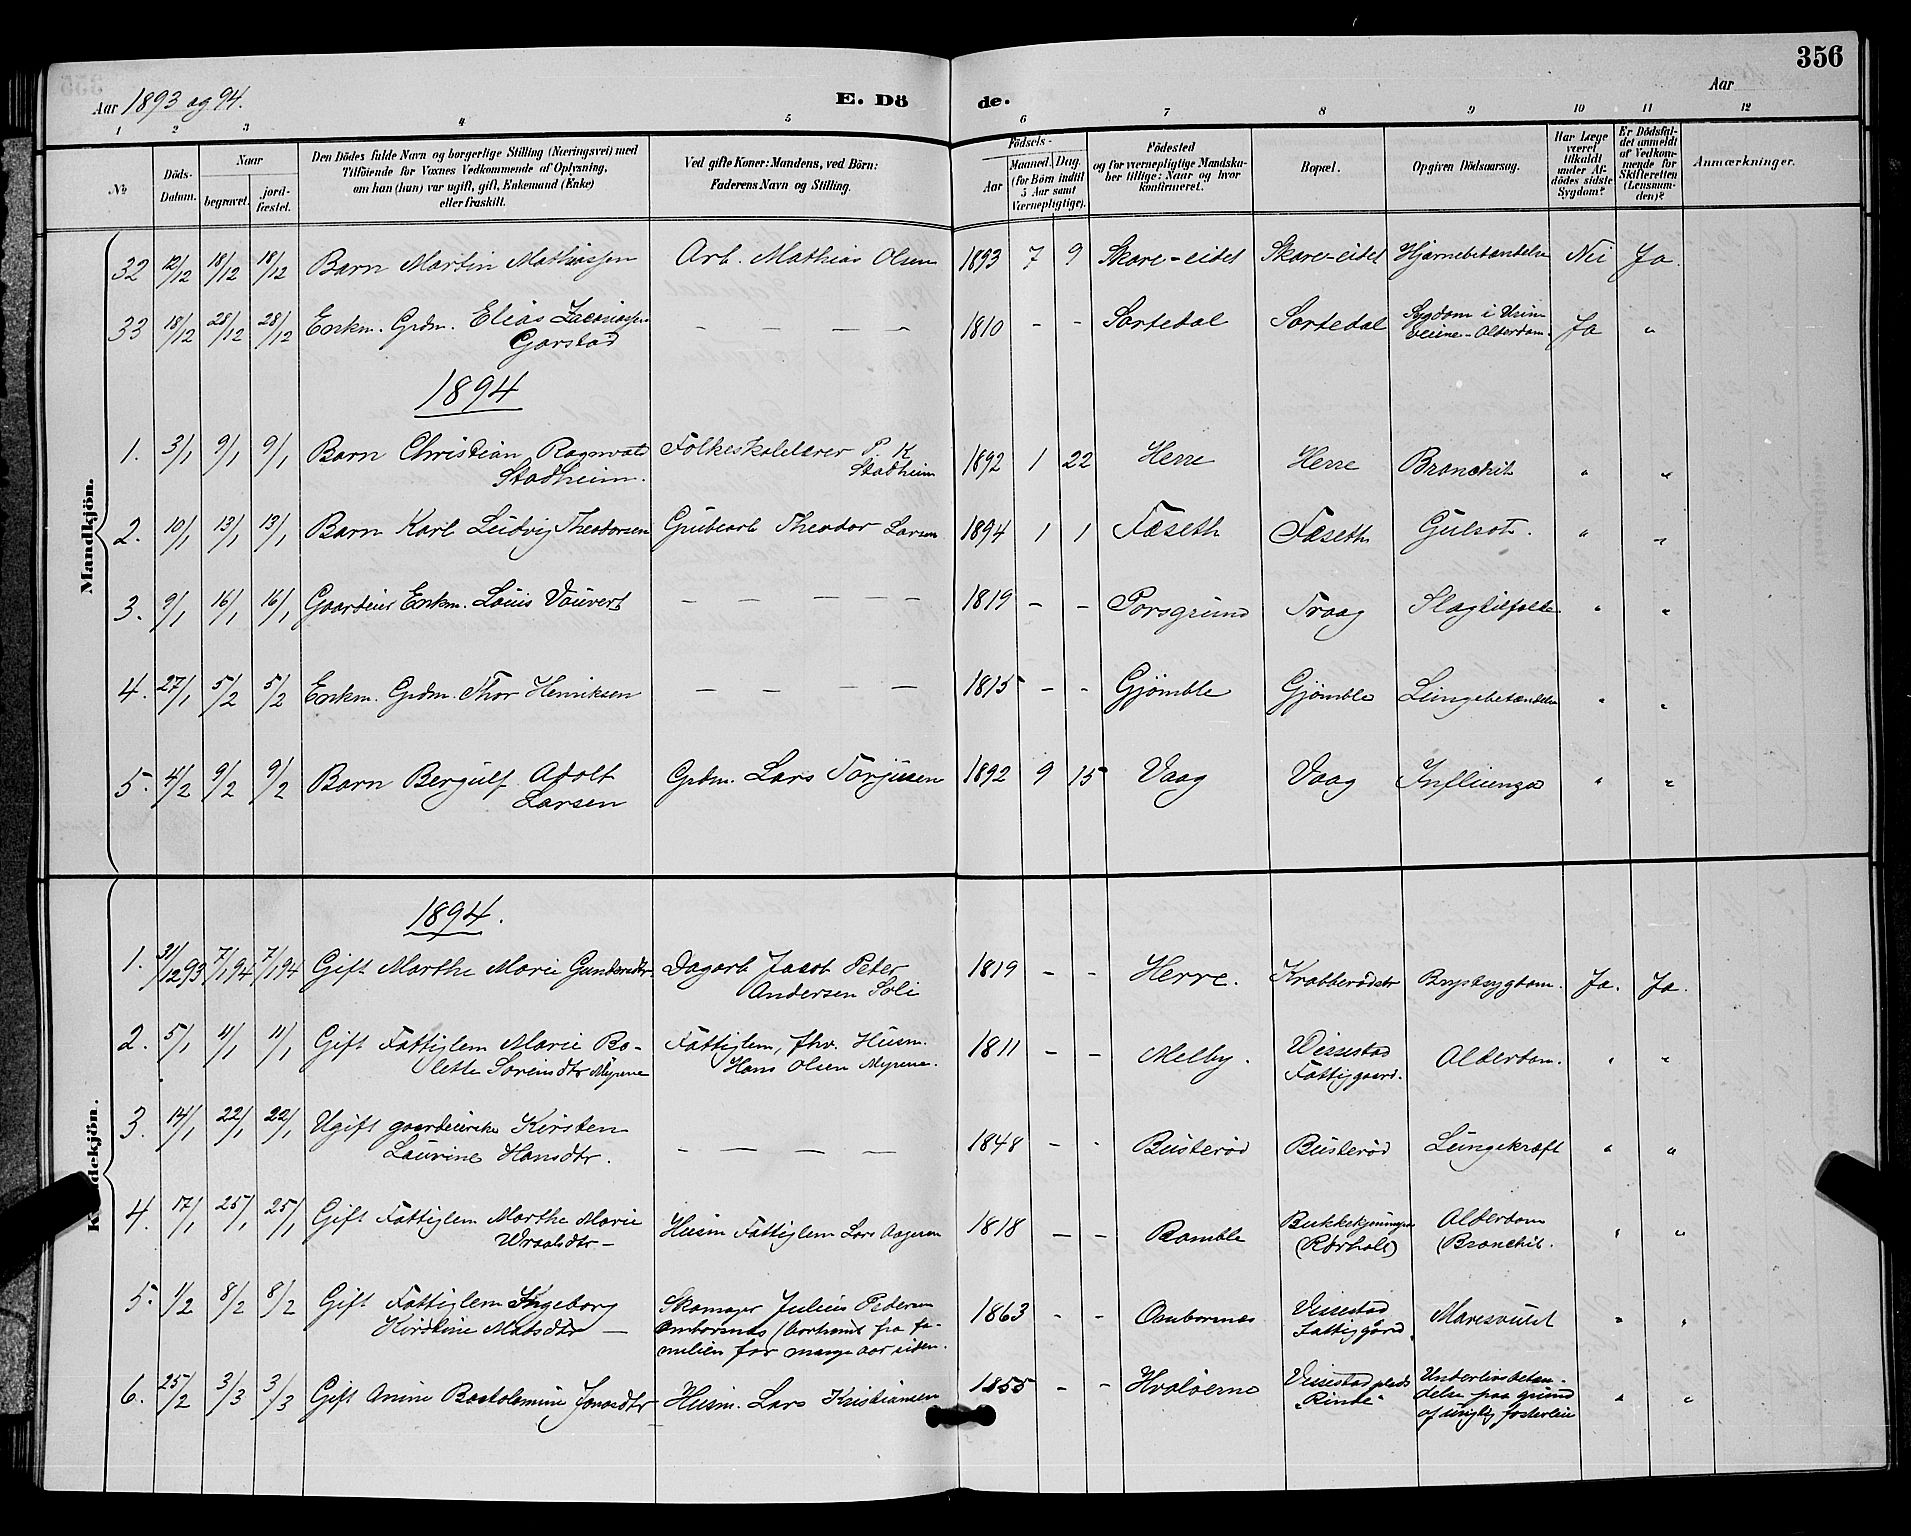 356
Aar 1893 og 94.
E. Dö
de.
Aar
1 2 3 4 5 6 7 8 9 10 11 12
No
Döds-Datum.
Naar
begravet.
jord-fæstet.
Den Dödes fulde Navn og borgerlige Stilling (Næringsvei) med
Tilföiende for Voxnes Vedkommende af Oplysning,
om han (hun) var ugift, gift, Enkemand (Enke)
eller fraskilt.
Ved gifte Koner: Mandens, ved Börn:
Faderens Navn og Stilling.
Födsels-
Aar
Maaned. Dag.
(for Börn indtil
5 Aar samt
Værnepligtige).
Födested
og for værnepligtige Mandska-
ber tillige: Naar og hvor
konfirmeret.
Bopæl.
Opgiven Dödsaarsag.
Har Læge
været
tilkaldt
under Af-
dödes sidste
Sygdom?
Er Dödsfal-
det anmeldt
af Vedkom-
mende for
Skifteretten
(Lensman-
den)?
Anmærkninger.
Mandkjön.
32 12/12 18/12 18/12 Barn Martin Mathiassen Arb. Mathias Olsen 1893 7 9 Skare-eidet Skare-eidet Hjærnebetændelse Nei Ja.
33 18/12 28/12 28/12 Enkm. Grdm. Elias Zacariassen — — — — 1810 - - Sortedal Sortedal Sygdom i Urin Ja "
Gorstad veiene - Alderdom.
1894
1. 3/1 9/1 9/1 Barn Christian Ragnvald Folkeskolelærer P. K 1892 1 22 Herre Herre Bronchit " "
Stadheim. Stadheim
2. 10/1 13/1 13/1 Barn Karl Ludvig Theodorsen Grubearb Theodor Larsen 1894 1 1 Fæseth Fæseth Gulsot. " "
3. 9/1 16/1 16/1 Gaardeier Enkm. Louis Vauvert — — — — 1819 - - Porsgrund Traag Slagtilfælde " "
4. 27/1 5/2 5/2 Enkm. Grdm. Thor Henriksen — — — — 1815 - - Gjömble Gjömble Lungebetændelse " "
5. 4/2 9/2 9/2 Barn Bergulf Adolf Grdm. Lars Torjusen 1892 9 15 Vaag Vaag Influenza " "
Larsen
Kvindekjön.
1894.
1. 31/12 93 7/1 94 7/1 94 Gift Marthe Marie Gundersdtr. Dagarb Jacob Peter 1819 - - Herre. Krabberødstr Brystsygdom. Ja. Ja.
Andersen Soli
2. 5/1 11/1 11/1 Gift Fattiglem Marie Bo- Fattiglem, fhv. Husm. 1811 - - Melby. Wissestad Alderdom. " "
lette Sörensdtr Myrene Hans Olsen Myrene. Fattiggaard.
3. 14/1 22/1 22/1 Ugift gaardeierske Kirsten - — — — 1848 - - Busteröd Busteröd Lungekræft " "
Laurine Hansdtr.
4. 17/1 25/1 25/1 Gift Fattiglem Marthe Marie Husm Fattiglem Lars Aagesen 1818 - - Bamble Alderdom " "
Wraalsdtr — (Rørholt) (Bronchit.
5. 1/2 8/2 8/2 Gift Fattiglem Ingeborg Skomager Julius Pedersen 1863 - - Omborsnes Vissestad Mavesvulst " "
Kirstine Matsdtr — Omborsnes (bortrømt fra fa- Fattiggård.
milien for mange aar siden.
6. 25/2 3/3 3/3 Gift Anine Bartolomine Jonasdtr Husm. Lars Kristiansen 1855 - - Hvalöerne Vissestad plads Underlivsbetæn- " "
"Rinde" delse paa grund
af utidig fosterleie